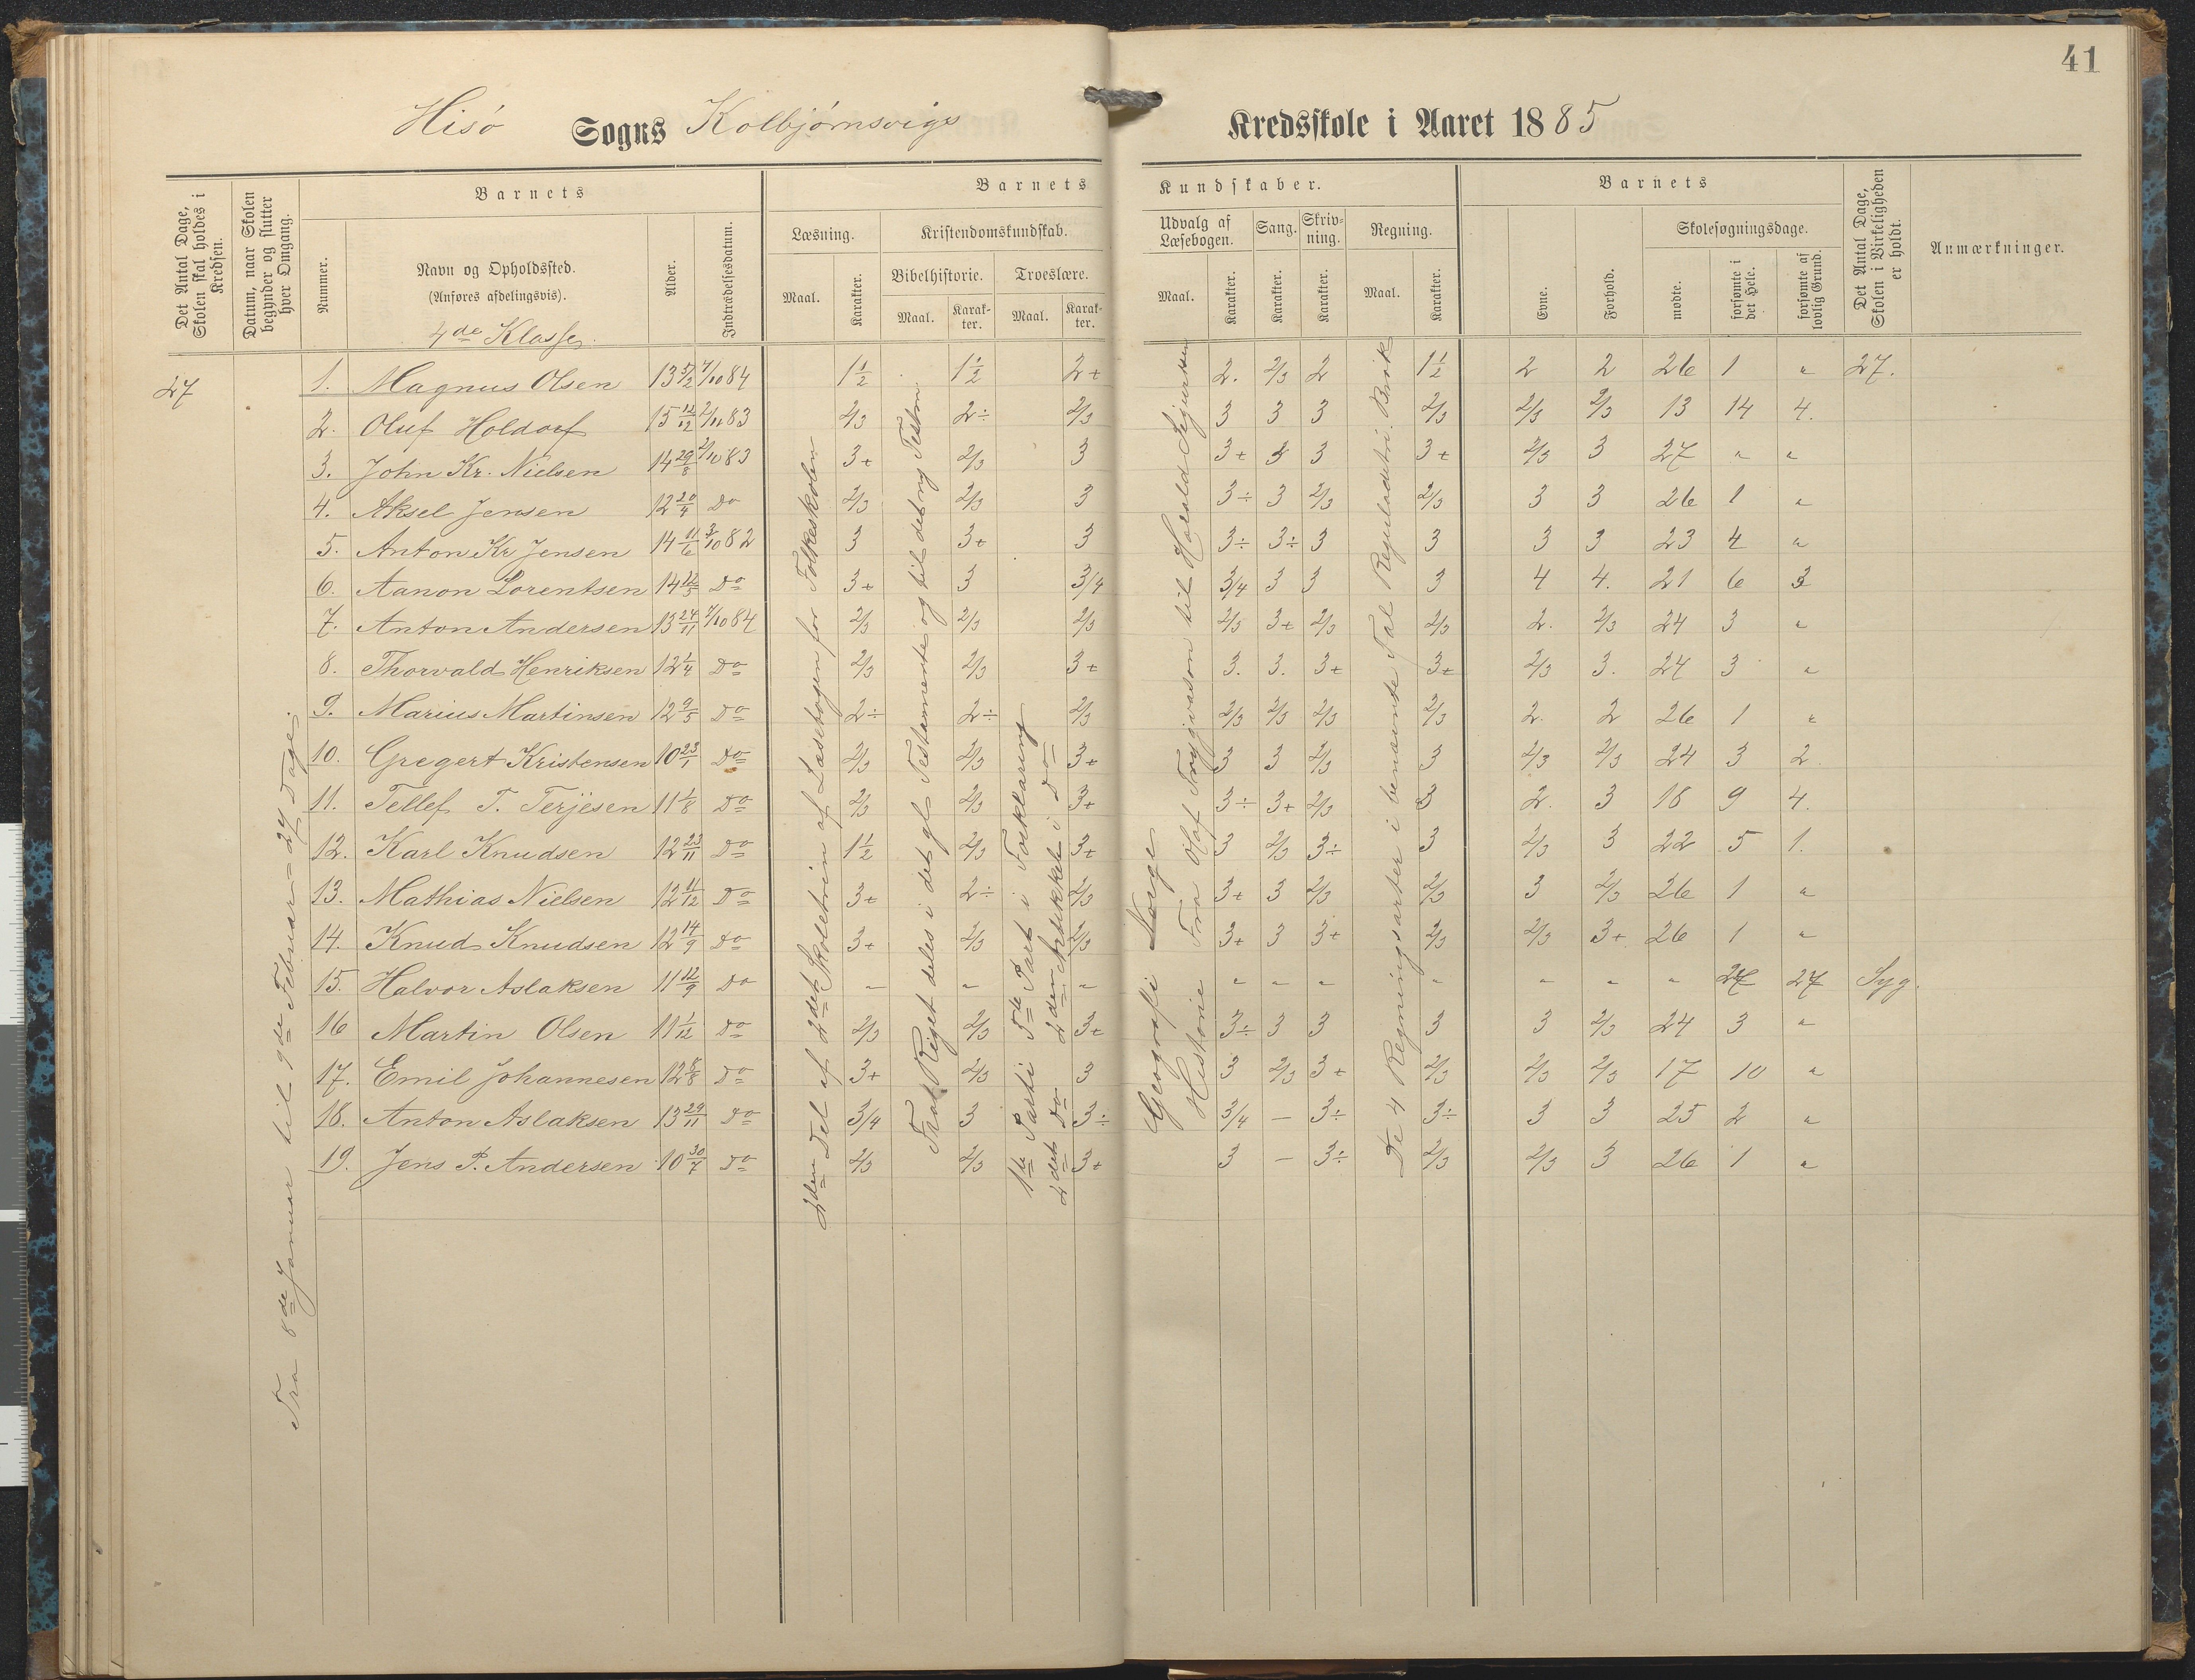 41
Hisø Sogns Kolbjørnsvigs Kredsskole i Aaret 1885
Det Antal Dage, Skolen skal holdes i Kredsen.
Datum, naar Skolen begynder og slutter hver Omgang.
Barnets
Nummer.
Navn og Opholdssted.
(Anføres afdelingsvis).
4de Klasse.
Alder.
Indtrædelsesdatum.
Barnets Kundskaber.
Læsning.
Maal.
Karakter.
Kristendomskundskab.
Bibelhistorie.
Maal.
Karakter.
Troeslære.
Maal.
Karakter.
Udvalg af Læsebogen.
Maal.
Karakter.
Sang.
Karakter.
Skrivning.
Karakter.
Regning.
Maal.
Karakter.
Barnets
Evne.
Forhold.
Skolesøgningsdage.
mødte.
forsømte i det Hele.
forsømte af lovlig Grund.
Det Antal Dage, Skolen i Virkeligheden er holdt.
Anmærkninger.
27
Fra 8de Januar til 9de Februar = 27 Dage.
2den Del af 2det Skoletrin af Læsebogen for Folkeskolen
Fra Riget deles i det gl. Testamente og til det ny Testm
1ste Parti 5te Part i Forklaring
2det Do 2den Artikkel i Do
Geografi Norge
Historie Fra Olaf Trygvason til Harald Sigurdssøn
De 4 Regningsarter i benævnte Tal Reguladetri. Brøk
1. Magnus Olsen 13 5/2 7/10 84 1½ 1½ 2+ 2. 2/3 2 1½ 2 2 26 1 " 27.
2. Oluf Holdorf 15 12/12 2/11 83 2/3 2÷ 2/3 3 3 3 2/3 2/3 2/3 13 14 4.
3. John Kr. Nielsen 14 29/8 2/10 83 3+ 2/3 3 3+ 3 3 3+ 2/3 3 27 " "
4. Aksel Jensen 12 20/4 Do 2/3 2/3 3 3÷ 3 2/3 2/3 3 3 26 1 "
5. Anton Kr Jensen 14 11/6 3/10 82 3 3+ 3 3÷ 3÷ 3 3 3 3 23 4 "
6. Aanon Lorentsen 14 12/5 Do 3+ 3 3/4 3/4 3 3 3 4 4. 21 6 3
7. Anton Andersen 13 24/11 7/10 84 2/3 2/3 2/3 2/3 3+ 2/3 2/3 2. 2/3 24 3 "
8. Thorvald Henriksen 12 1/4 Do 2/3 2/3 3+ 3. 3. 3+ 3+ 2/3 3. 24 3 "
9. Marius Martinsen 12 9/5 Do 2÷ 2÷ 2/3 2/3 2/3 2/3 2/3 2. 2 26 1 "
10. Gregert Kristensen 10 23/1 Do 2/3 2/3 3+ 3 3 2/3 3 2/3 2/3 24 3 2
11. Tellef T. Terjesen 11 1/8 Do 2/3 2/3 3+ 3÷ 3+ 2/3 3 2. 3 18 9 4.
12. Karl Knudsen 12 23/11 Do 1½ 2/3 3+ 3 2/3 3÷ 3 2/3 3 22 5 1.
13. Mathias Nielsen 12 11/12 Do 3+ 2÷ 2/3 3+ 3 2/3 2/3 3 2/3 26 1 "
14. Knud Knudsen 12 14/9 Do 3+ 2/3 2/3 3+ 3 3+ 2/3 2/3 3+ 26 1 "
15. Halvor Aslaksen 11 12/9 Do " " " " " " " " " " 27 27 Syg.
16 Martin Olsen 11 1/12 Do 2/3 2/3 3+ 3÷ 3 3 3 3 2/3 24 3 "
17. Emil Johannesen 12 8/8 Do 3+ 2/3 3 3 2/3 3+ 2/3 2/3 2/3 17 10 "
18. Anton Aslaksen 13 29/11 Do 3/4 3 3÷ 3/4 — 3÷ 3÷ 3 3 25 2 "
19. Jens P. Andersen 10 30/7 Do 2/3 2/3 3+ 3 — 3÷ 2/3 2/3 3 26 1 "